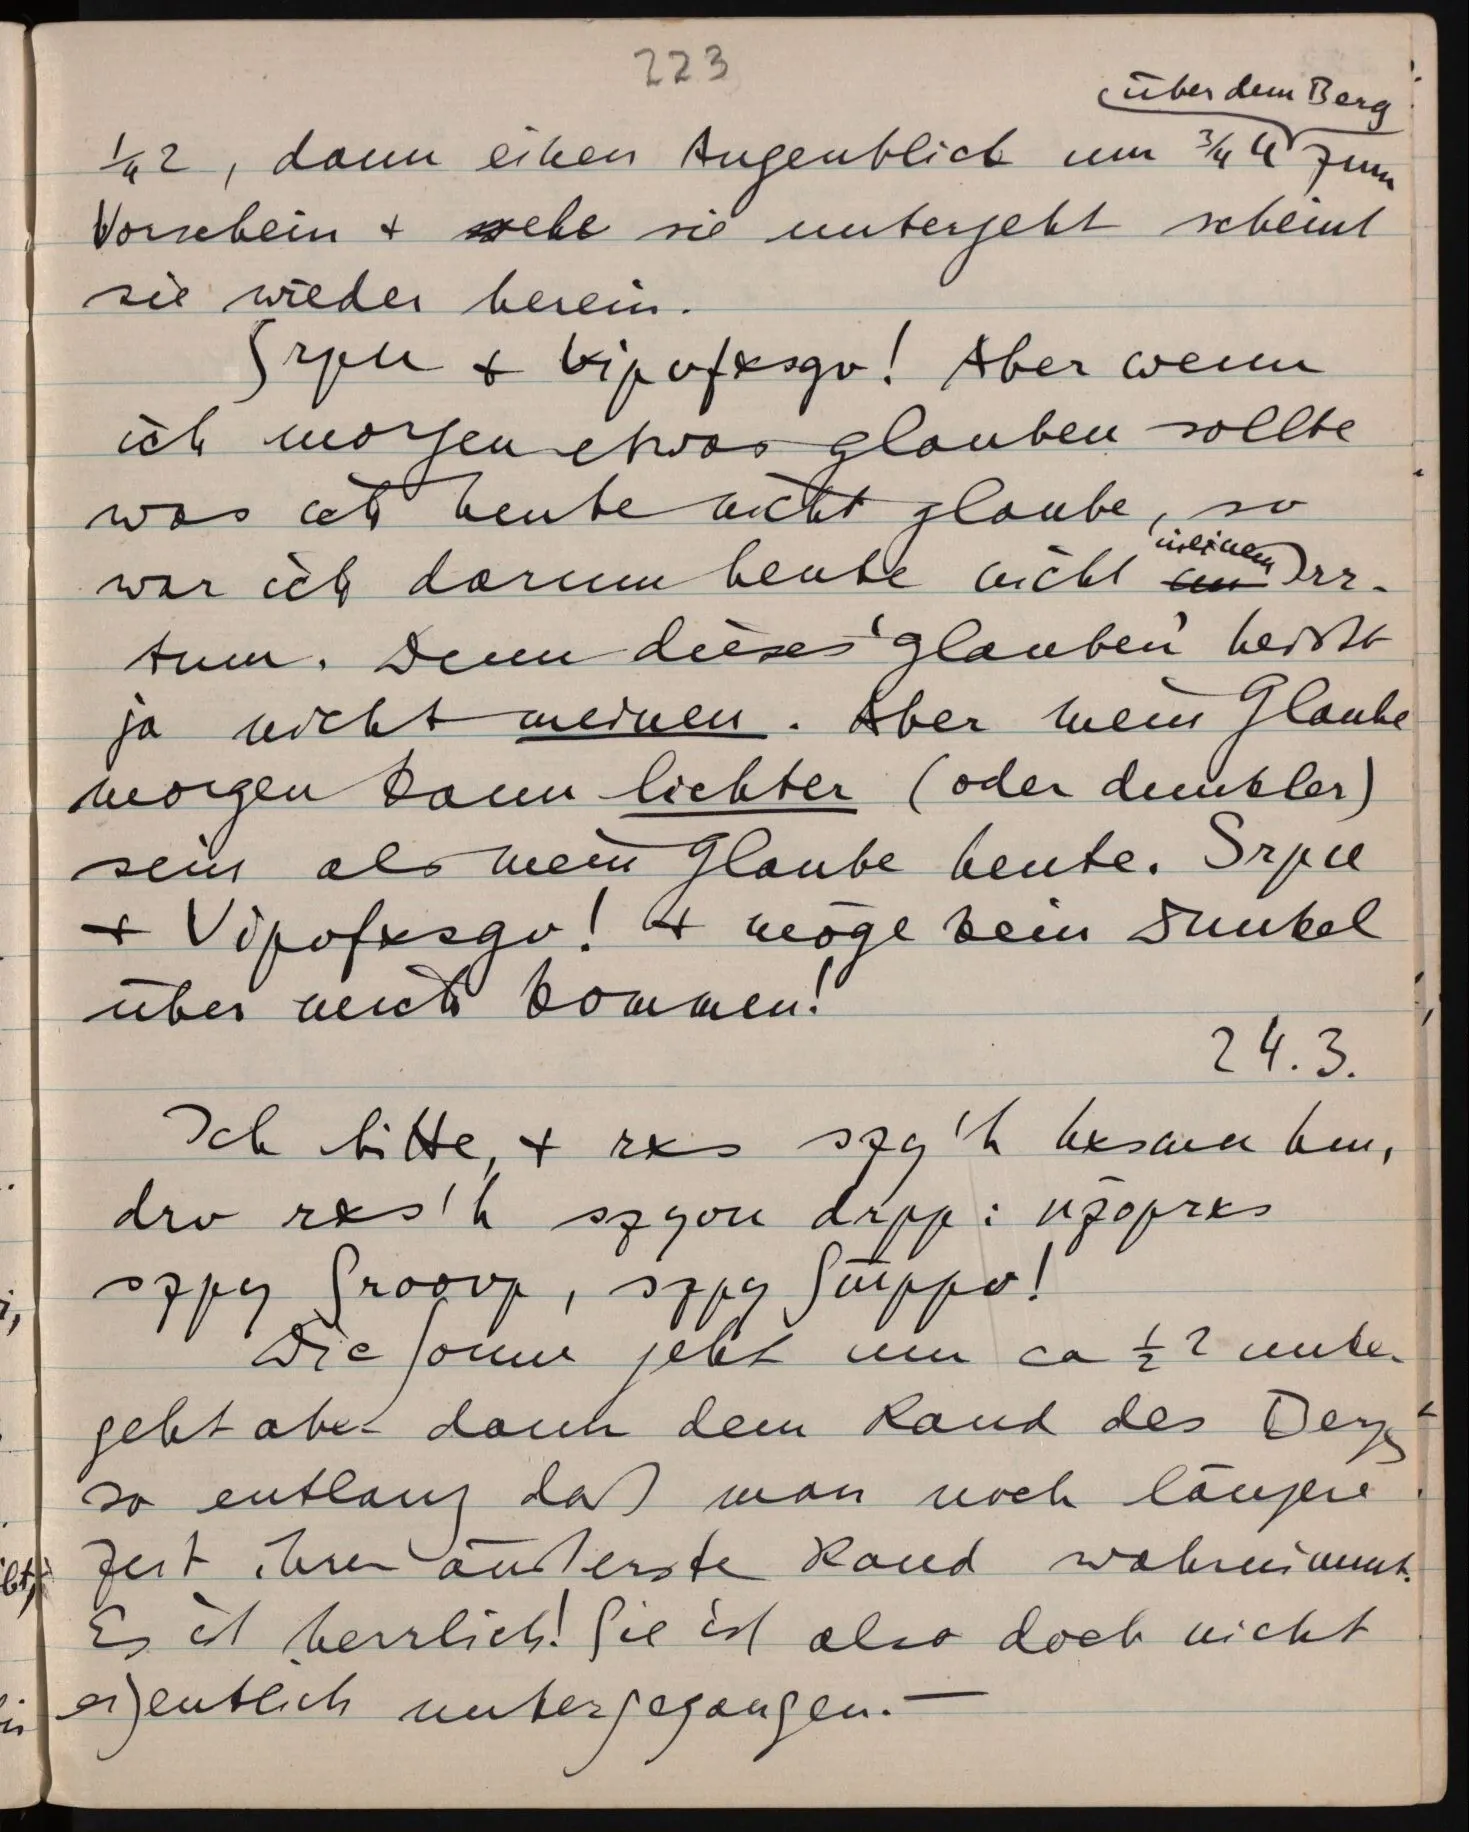 223
über dem Berg
¼ 2, dann einen Augenblick um ¾ 4 zum
Vorschein + ehe sie untergeht scheint
sie wieder herein.
Srpu + Vipofxsgv! Aber wenn
ich morgen etwas glauben sollte
was ich heute nicht glaube, so
war ich darum heute nicht in einem Irr-
tum. Denn dieses 'glauben' heißt
ja nicht meinen. Aber mein Glaube
morgen kann lichter (oder dunkler)
sein als mein Glaube heute. Srpu
+ Vipofxsgv! + möge kein Dunkel
über mich kommen!
24.3.
Ich bitte, + rxs szg'h
drv rxs'h szgou drpp:
szpg, szpg
Die Sonne geht um ca ½ 2 unter
geht aber dann dem Rand des Bergs
so entlang daß man noch längere
Zeit ihren äußerste Rand wahrnimmt.
Es ist herrlich! Sie ist also doch nicht
eigentlich untergegangen. —